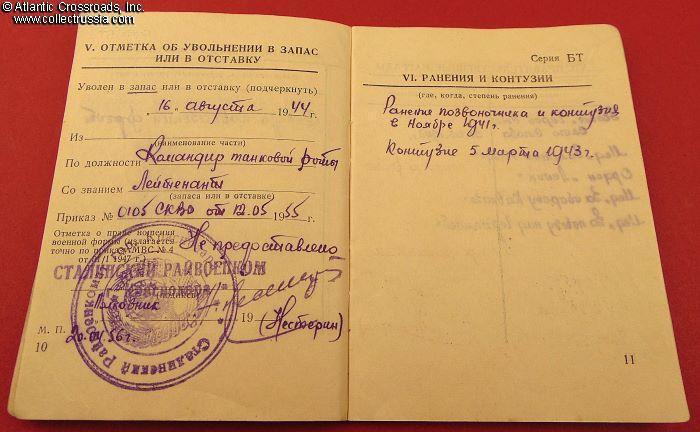 © Atlantic Crossroads, Inc.
www.collectrussia.com
V. ОТМЕТКА ОБ УВОЛЬНЕНИИ В ЗАПАС
ИЛИ В ОТСТАВКУ
Уволен в запас или в отставку (подчеркнуть)
16. августа 1944 г.
Из
(наименование части)
По должности Командир танковой роты
Со званием Лейтенант
(запаса или в отставке)
Приказ № 0105 СКВО от 12.05 1955 г.
Отметка о праве ношения
военной формы (излагается
точно по приказу МВС № 4
от 1/I 1947 г.) Не предоставлено
СТАЛИНСКИЙ РАЙВОЕНКОМ
Полковник
(подпись)
19
(Нестерин)
М. П.
20.04.56г.
Сталинский Райвоенком
10
Серия БТ
VI. РАНЕНИЯ И КОНТУЗИИ
(где, когда, степень ранения)
Ранение позвоночника и контузия
в Ноябре 1941г.
Контузие 5 марта 1943г.
11